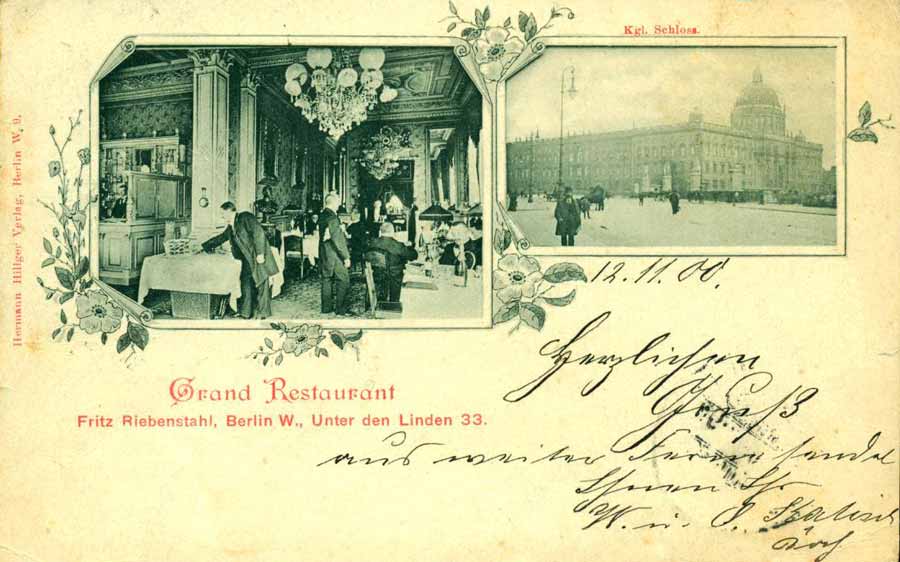 Kgl. Schloss.
Hermann Hillger Verlag, Berlin W. 9.
12.11.00.
Grand Restaurant
Fritz Riebenstahl, Berlin W., Unter den Linden 33.
Herzlichen
Gruß
aus weiter Ferne sendet
Ihnen Ihr
W. u. O.